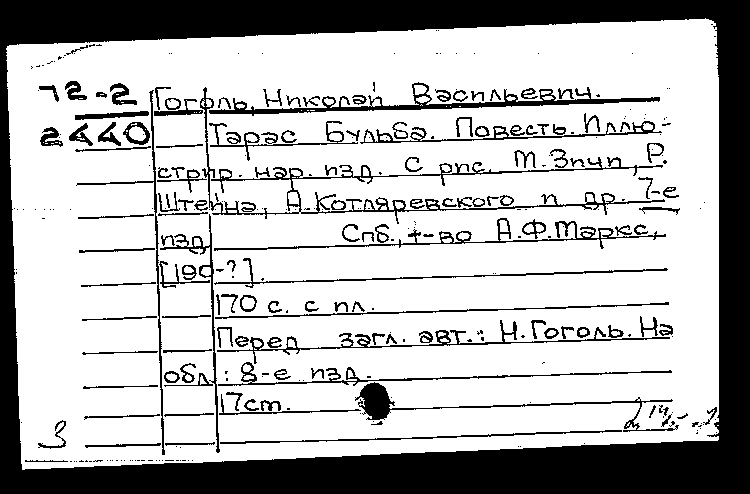 72-2
2440
Гоголь, Николай Васильевич.
Тарас Бульба. Повесть. Иллю-
стрир. нар. изд. С рис. М. Зичи, Р.
Штейна, А. Котляревского и др. 7-е
изд. Спб., т-во А.Ф. Маркс,
[190-?].
170 с. с ил.
Перед загл. авт.: Н. Гоголь. На
обл.: 8-е изд.
17 ст.
3